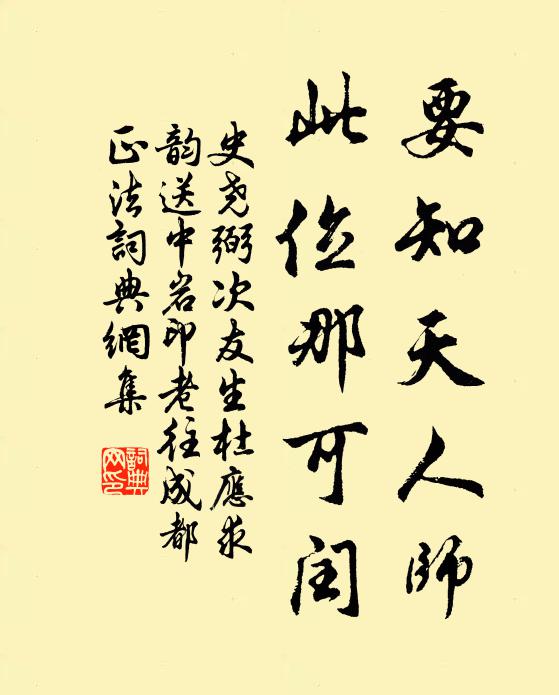 要知天人師
此位那可闰
史尧弼次友生杜應求
韵送中岩印老往成都
正法詞典網集
詞典
网印